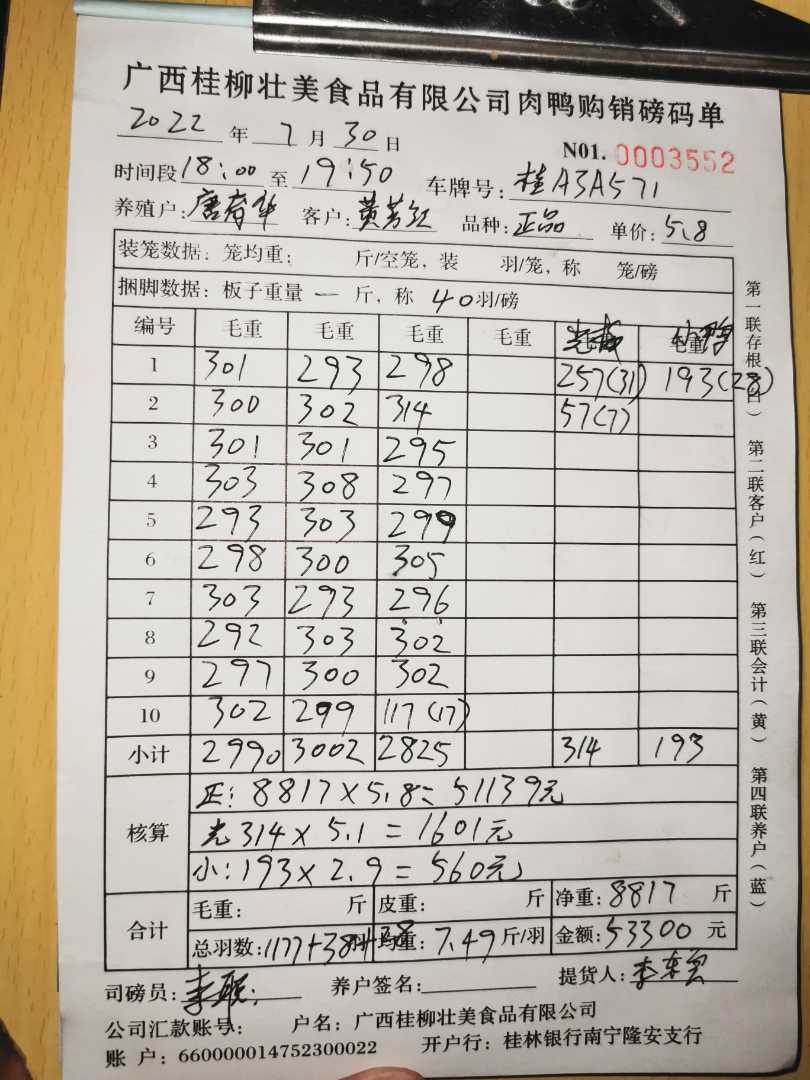 广西桂柳壮美食品有限公司肉鸭购销磅码单
2022年7月30日
N01. 0003552
时间段18:00至19:50 车牌号:桂A3A571
养殖户: 客户:黄芳红 品种:正品 单价:5.8
装笼数据:笼均重: 斤/空笼,装 羽/笼,称 笼/磅
捆脚数据:板子重量 一 斤,称 40羽/磅
编号 毛重 毛重 毛重 毛重 毛重
1 301 293 298 257(31) 193(28)
2 300 302 314 57(7)
3 301 301 295
4 303 308 297
5 293 303 299
6 298 300 305
7 303 293 296
8 292 303 302
9 297 300 302
10 302 299 117(17)
小计 2990 3002 2825 314 193
核算
正:8817×5.8=51139元
光314×5.1=1601元
小:193×2.9=560元
合计
毛重: 斤 皮重: 斤 净重:8817 斤
总羽数:1177+38+28 均重:7.49斤/羽 金额:53300元
司磅员: 养户签名: 提货人:
公司汇款账号: 户名:广西桂柳壮美食品有限公司
账 户:660000014752300022 开户行:桂林银行南宁隆安支行
第一联存根(白) 第二联客户(红) 第三联会计(黄) 第四联养户(蓝)